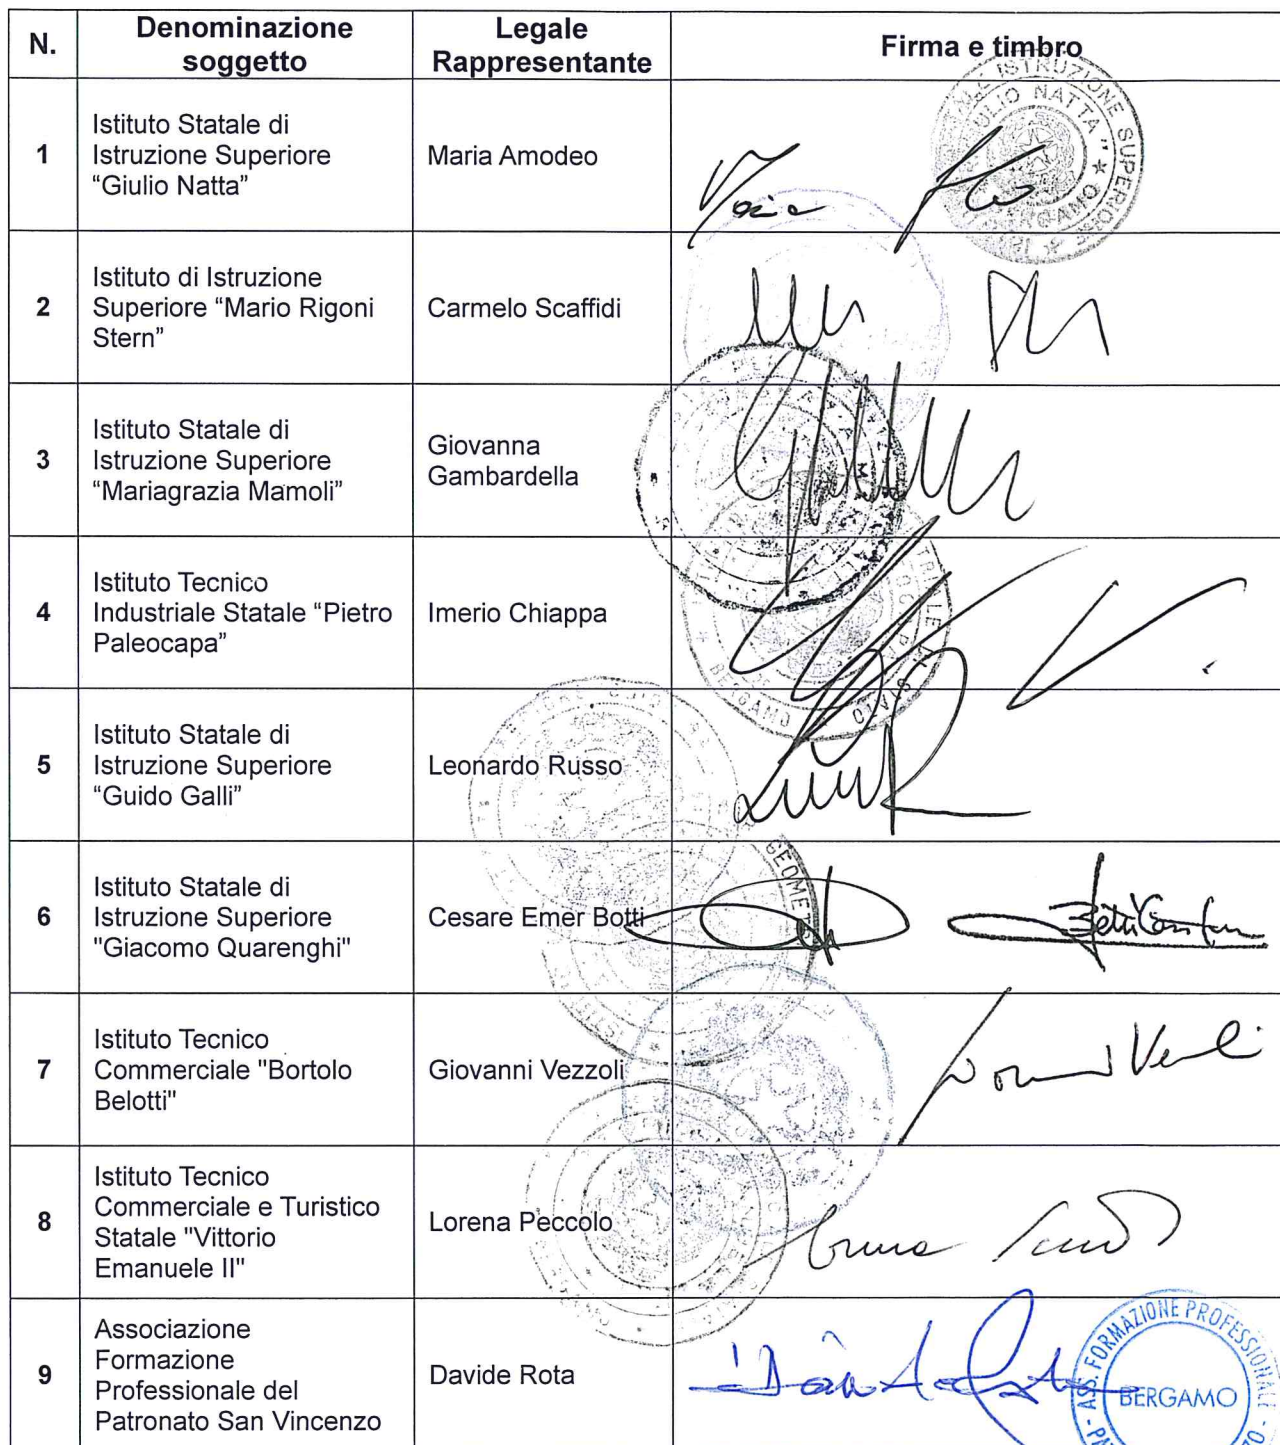 N.
Denominazione
soggetto
Legale
Rappresentante
Firma e timbro
1
Istituto Statale di
Istruzione Superiore
“Giulio Natta”
Maria Amodeo
ISTRUZIONE SUPERIORE
NATTA"
Maria
2
Istituto di Istruzione
Superiore “Mario Rigoni
Stern”
Carmelo Scaffidi
3
Istituto Statale di
Istruzione Superiore
“Mariagrazia Mamoli”
Giovanna
Gambardella
4
Istituto Tecnico
Industriale Statale “Pietro
Paleocapa”
Imerio Chiappa
BERGAMO
5
Istituto Statale di
Istruzione Superiore
“Guido Galli”
Leonardo Russo
6
Istituto Statale di
Istruzione Superiore
"Giacomo Quarenghi"
Cesare Emer Botti
7
Istituto Tecnico
Commerciale "Bortolo
Belotti"
Giovanni Vezzoli
8
Istituto Tecnico
Commerciale e Turistico
Statale "Vittorio
Emanuele II"
Lorena Peccolo
9
Associazione
Formazione
Professionale del
Patronato San Vincenzo
Davide Rota
ASS. FORMAZIONE PROFESSIONALE
BERGAMO